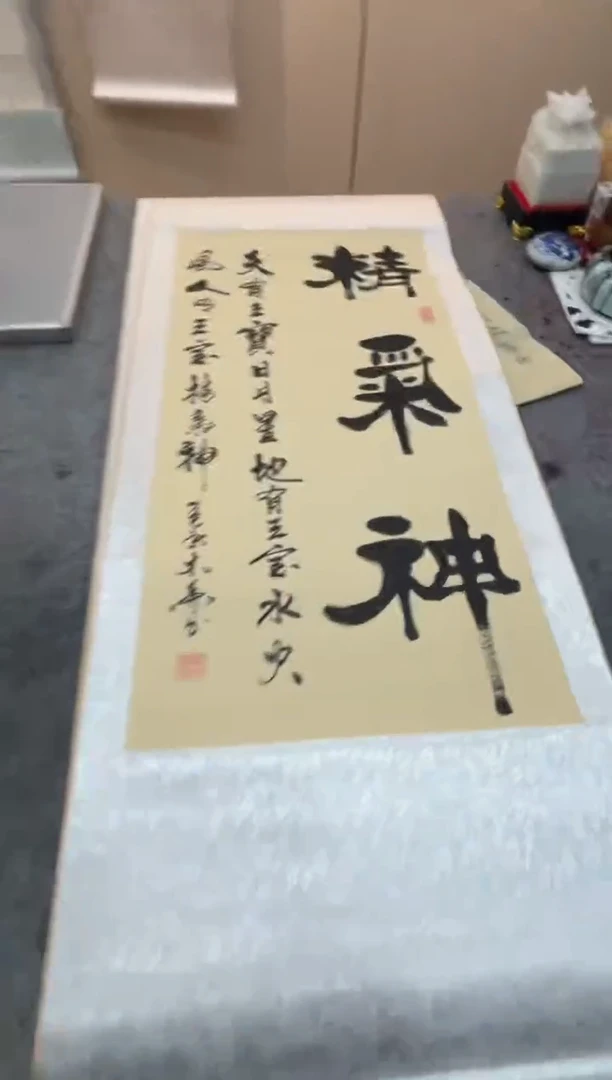 精氣神
天有三寶日月星地有三宝水火
風人有三宝精氣神